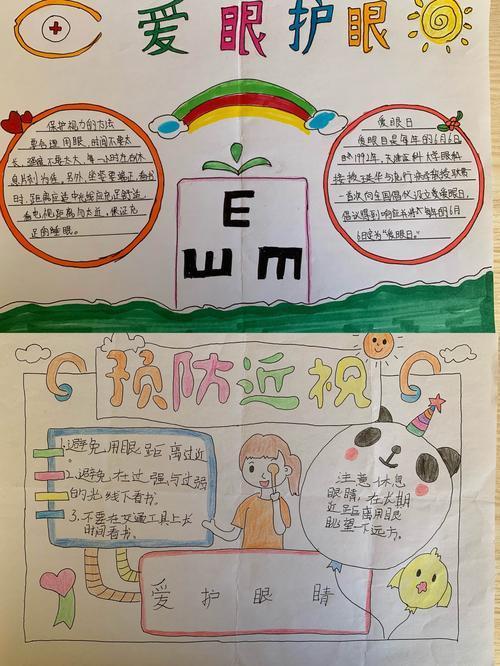 爱眼护眼
保护视力的方法
要合理用眼,时间不要太
长,强度不要太大,每一小时左右休
息片刻为佳。另外,坐姿要端正,看书
时,距离应适中,光线应充足舒适,
看电视距离勿太近,保证充
足的睡眠。
E
E
E
爱眼日
爱眼日是每年的6月6日
时1992年,天津医科大学眼科
教授王延华与流行
首次向全国倡议设立爱眼日,
倡议得到响应
6日定为“爱眼日”。
预防近视
1.避免用眼距离过近
。
2.避免在过强与过弱
的光线下看书。
3.不要在交通工具上长
时间看书。
注意休息
眼睛,在长期
近距离用眼
眺望下远方。
爱护眼睛